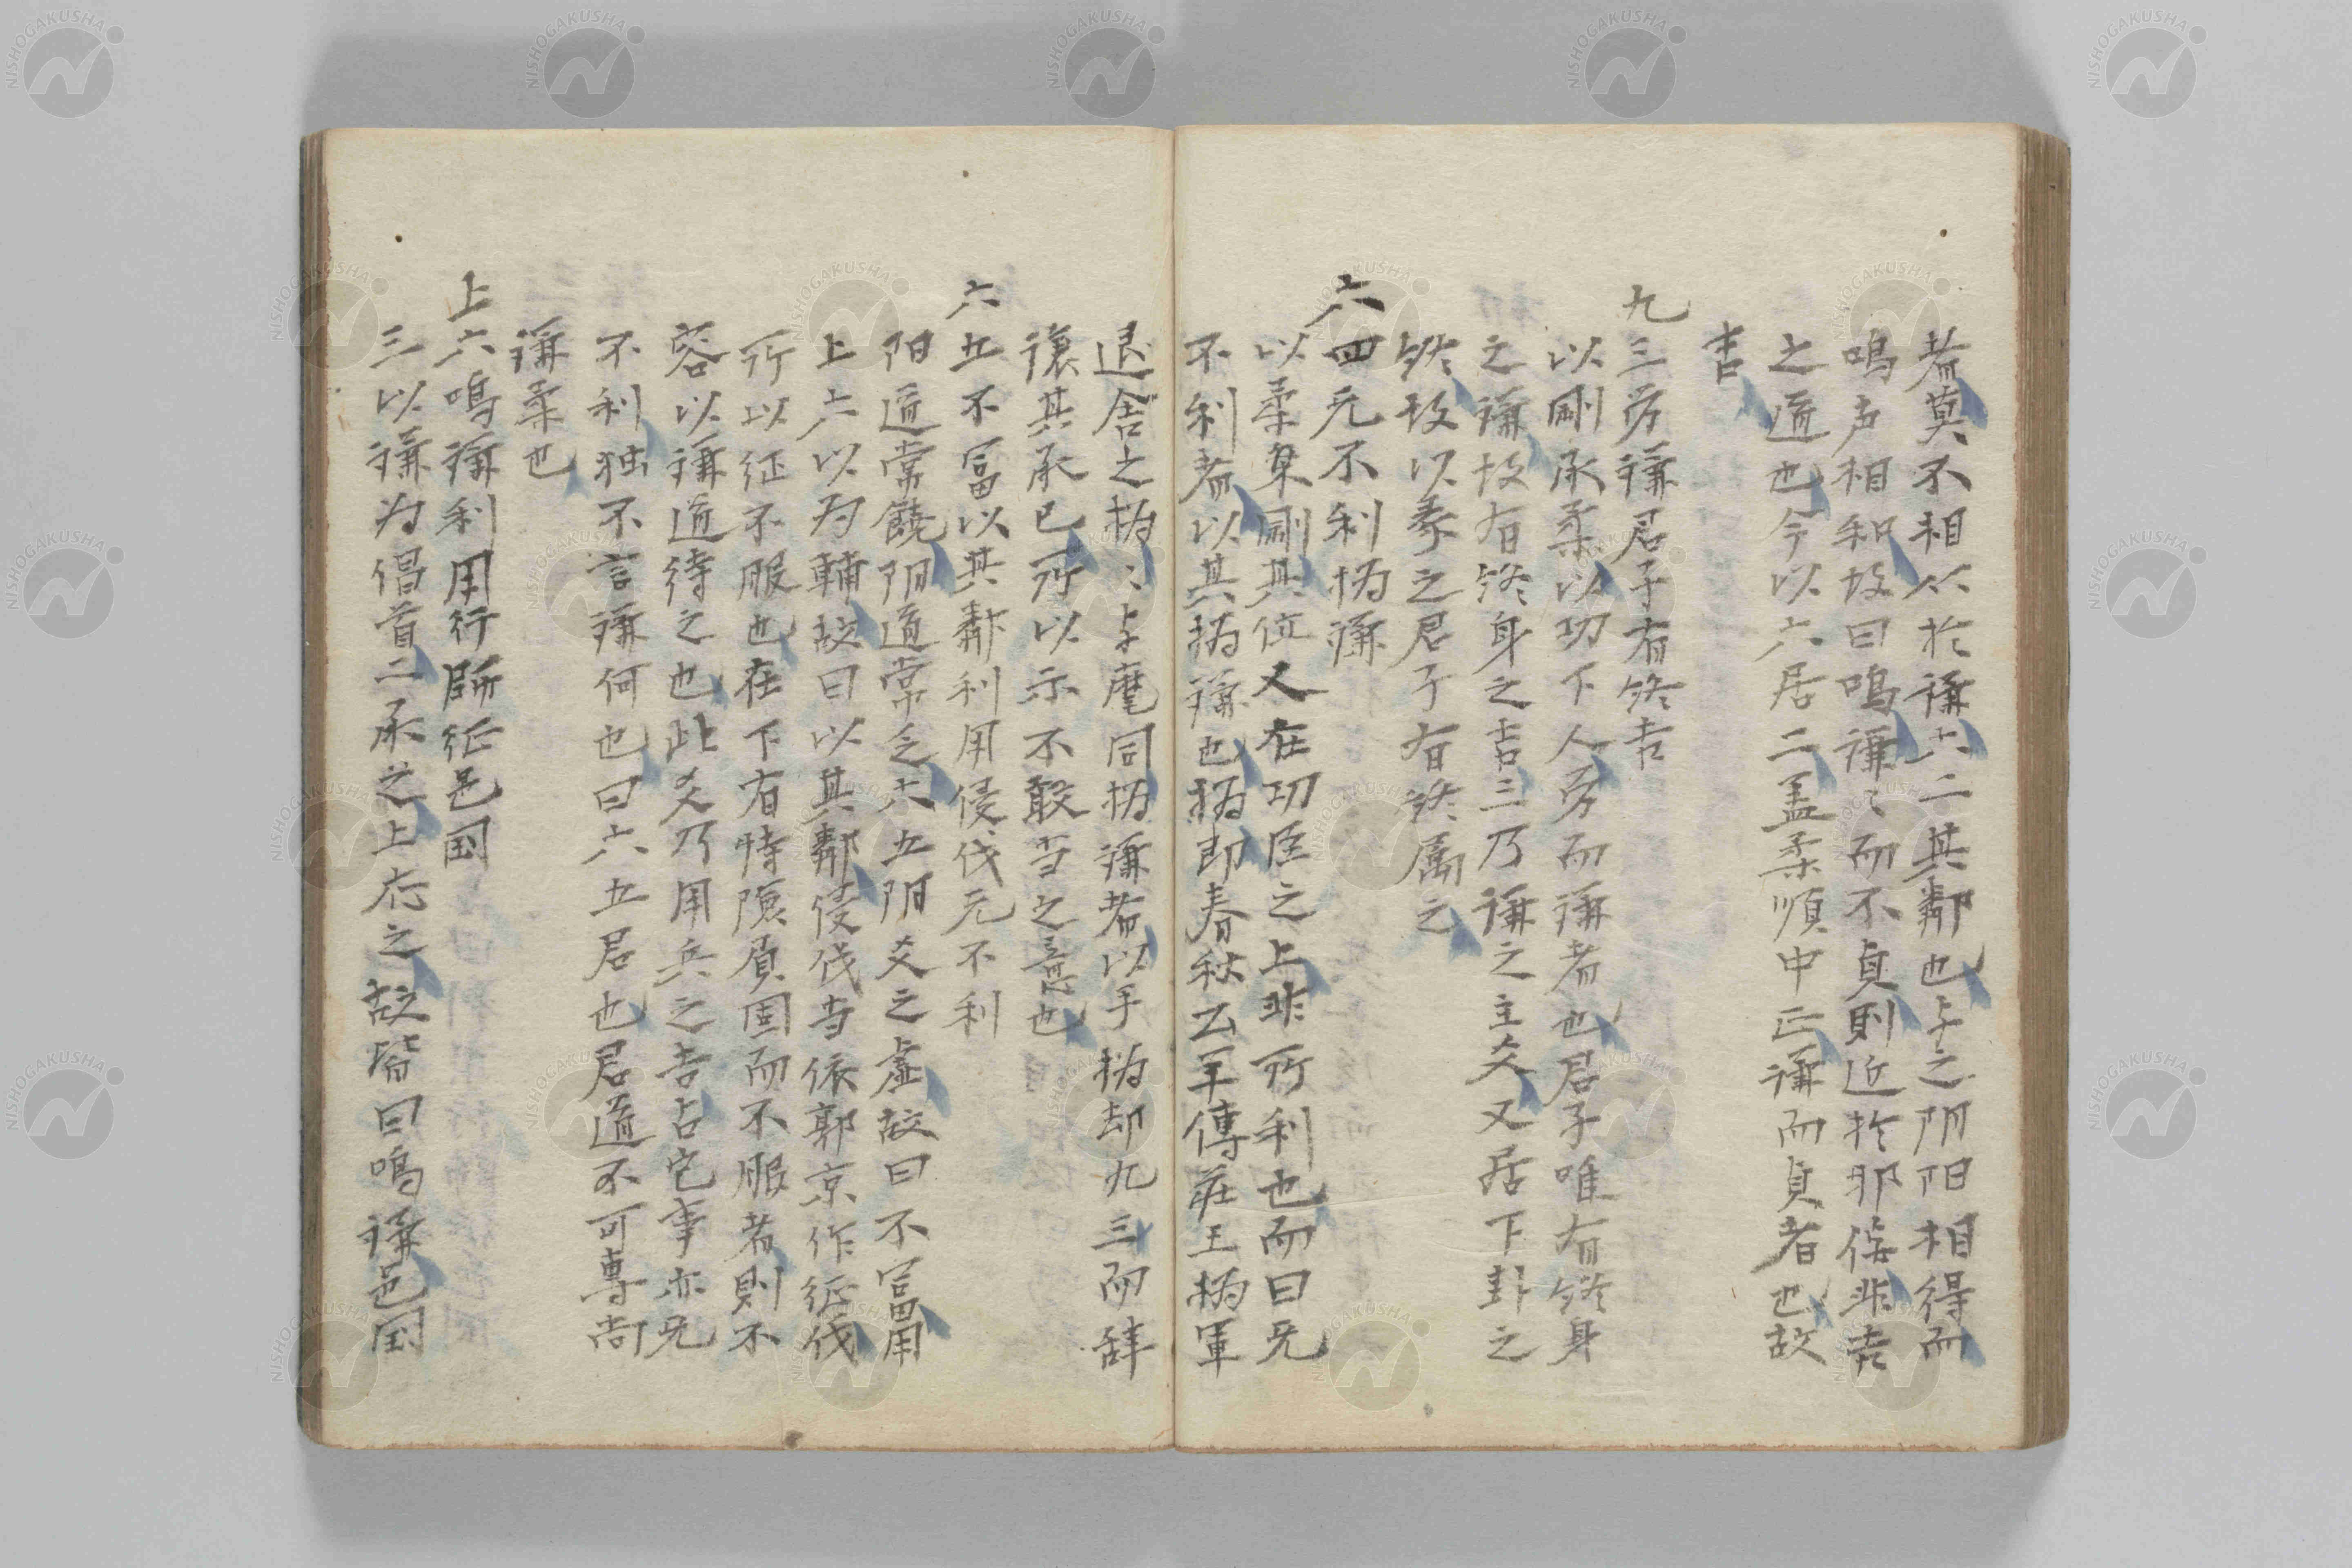 者莫不相从於謙六二其鄰也与之阴阳相得而
鳴声相和故曰鳴謙〻而不貞則近於邪佞非吉
之道也今以六居二盖柔順中正謙而貞者也故
吉
九三労謙君子有終吉
以剛承柔以功下人労而謙者也君子唯有終身
之謙故有終身之吉三乃謙之主爻又居下卦之
終故以彖之君子有終属之
六四无不利撝謙
以柔乗剛其位又在功臣之上非所利也而曰无
不利者以其撝謙也撝即春秋公羊傳莊王撝軍
退舍之撝〻与麾同撝謙者以手撝却九三而辞
讓其承已所以示不敢当之意也
六五不富以其鄰利用侵伐无不利
阳道常饒阴道常乏六五阴爻之虚故曰不富用
上六以为輔故曰以其鄰侵伐当依郭京作征伐
所以征不服也在下有恃險負固而不服者則不
容以謙道待之也此爻乃用兵之吉占它事亦无
不利独不言謙何也曰六五君也君道不可專尚
謙柔也
上六鳴謙利用行師征邑国
三以謙为倡首二承之上应之故皆曰鳴謙邑国
NISHOGAKUSHA